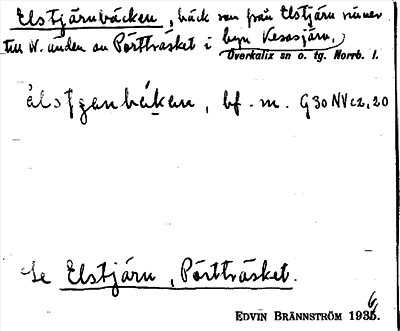 Elstjärnbäcken, bäck som från Elstjärn rinner
till N. änden av Pörtträsket i byn Vesasjärv,
Överkalix sn o. tg. Norrb. l.
älstjganbäkan, bf. m. G30NVc2,20
Se Elstjärn, Pörtträsket.
EDVIN BRÄNNSTRÖM 1936.